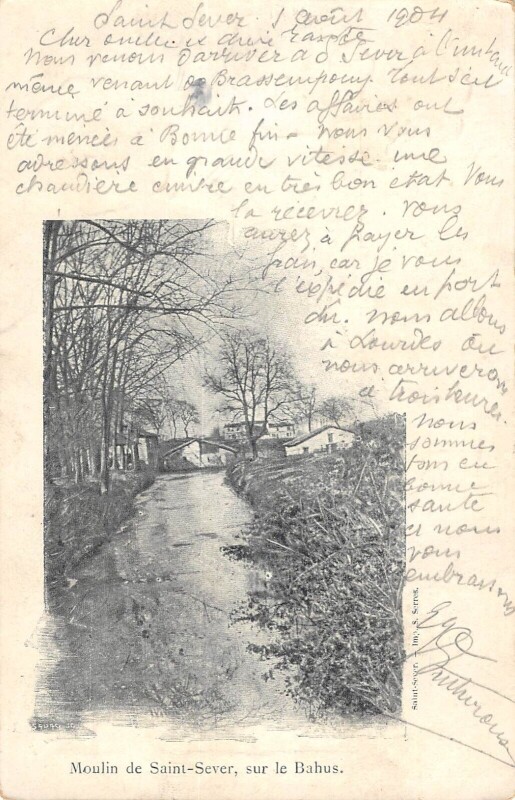 Saint Sever 1 août 1904
Cher oncle et chère
Nous venons d'arriver à St Sever à l'instant
même venant de Brassempouy tout s'est
terminé à souhait. Les affaires ont
été menées à Bonne fin - Nous vous
adressons en grande vitesse une
chaudière cuivre en très bon état. Vous
la recevrez. Vous
aurez à payer les
frais, car je vous
l'expédie en port
du. Nous allons
à Lourdes ou
nous arriverons
à trois heures.
Nous
sommes
tous en
bonne
santé
et nous
vous
embrassons
Saint-Sever. — Imp. S. Serres.
Moulin de Saint-Sever, sur le Bahus.